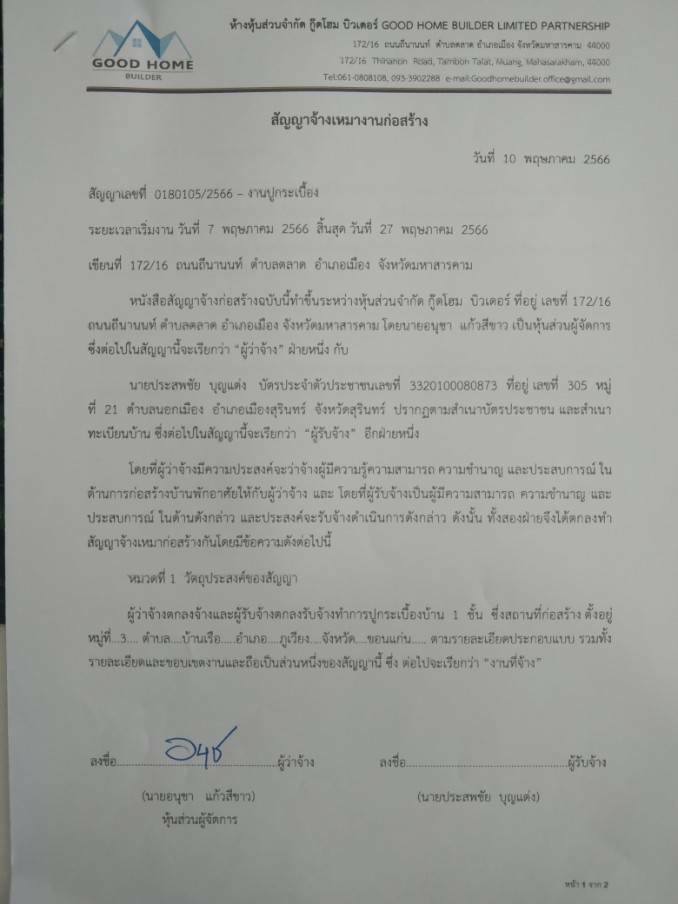 GOOD HOME
BUILDER
ห้างหุ้นส่วนจำกัด กู๊ดโฮม บิวเดอร์ GOOD HOME BUILDER LIMITED PARTNERSHIP
172/16 ถนนถีนานนท์ ตำบลตลาด อำเภอเมือง จังหวัดมหาสารคาม 44000
172/16 Thinanon Road, Tambon Talat, Muang, Mahasarakham, 44000
Tel:061-0808108, 093-3902288 e-mail:Goodhomebuilder.office@gmail.com
สัญญาจ้างเหมางานก่อสร้าง
วันที่ 10 พฤษภาคม 2566
สัญญาเลขที่ 0180105/2566 – งานปูกระเบื้อง
ระยะเวลาเริ่มงาน วันที่ 7 พฤษภาคม 2566 สิ้นสุด วันที่ 27 พฤษภาคม 2566
เขียนที่ 172/16 ถนนถีนานนท์ ตำบลตลาด อำเภอเมือง จังหวัดมหาสารคาม
หนังสือสัญญาจ้างก่อสร้างฉบับนี้ทำขึ้นระหว่างหุ้นส่วนจำกัด กู๊ดโฮม บิวเดอร์ ที่อยู่ เลขที่ 172/16
ถนนถีนานนท์ ตำบลตลาด อำเภอเมือง จังหวัดมหาสารคาม โดยนายอนุชา แก้วสีขาว เป็นหุ้นส่วนผู้จัดการ
ซึ่งต่อไปในสัญญานี้จะเรียกว่า “ผู้ว่าจ้าง” ฝ่ายหนึ่ง กับ
นายประสพชัย บุญแต่ง บัตรประจำตัวประชาชนเลขที่ 3320100080873 ที่อยู่ เลขที่ 305 หมู่
ที่ 21 ตำบลนอกเมือง อำเภอเมืองสุรินทร์ จังหวัดสุรินทร์ ปรากฏตามสำเนาบัตรประชาชน และสำเนา
ทะเบียนบ้าน ซึ่งต่อไปในสัญญานี้จะเรียกว่า “ผู้รับจ้าง” อีกฝ่ายหนึ่ง
โดยที่ผู้ว่าจ้างมีความประสงค์จะว่าจ้างผู้มีความรู้ความสามารถ ความชำนาญ และประสบการณ์ ใน
ด้านการก่อสร้างบ้านพักอาศัยให้กับผู้ว่าจ้าง และ โดยที่ผู้รับจ้างเป็นผู้มีความสามารถ ความชำนาญ และ
ประสบการณ์ ในด้านดังกล่าว และประสงค์จะรับจ้างดำเนินการดังกล่าว ดังนั้น ทั้งสองฝ่ายจึงได้ตกลงทำ
สัญญาจ้างเหมาก่อสร้างกันโดยมีข้อความดังต่อไปนี้
หมวดที่ 1 วัตถุประสงค์ของสัญญา
ผู้ว่าจ้างตกลงจ้างและผู้รับจ้างตกลงรับจ้างทำการปูกระเบื้องบ้าน 1 ชั้น ซึ่งสถานที่ก่อสร้าง ตั้งอยู่
หมู่ที่...3.... ตำบล....บ้านเรือ.....อำเภอ....ภูเวียง....จังหวัด....ขอนแก่น..... ตามรายละเอียดประกอบแบบ รวมทั้ง
รายละเอียดและขอบเขตงานและถือเป็นส่วนหนึ่งของสัญญานี้ ซึ่ง ต่อไปจะเรียกว่า “งานที่จ้าง”
ลงชื่อ อนุช ผู้ว่าจ้าง
ลงชื่อ ผู้รับจ้าง
(นายอนุชา แก้วสีขาว)
(นายประสพชัย บุญแต่ง)
หุ้นส่วนผู้จัดการ
หน้า 1 จาก 2